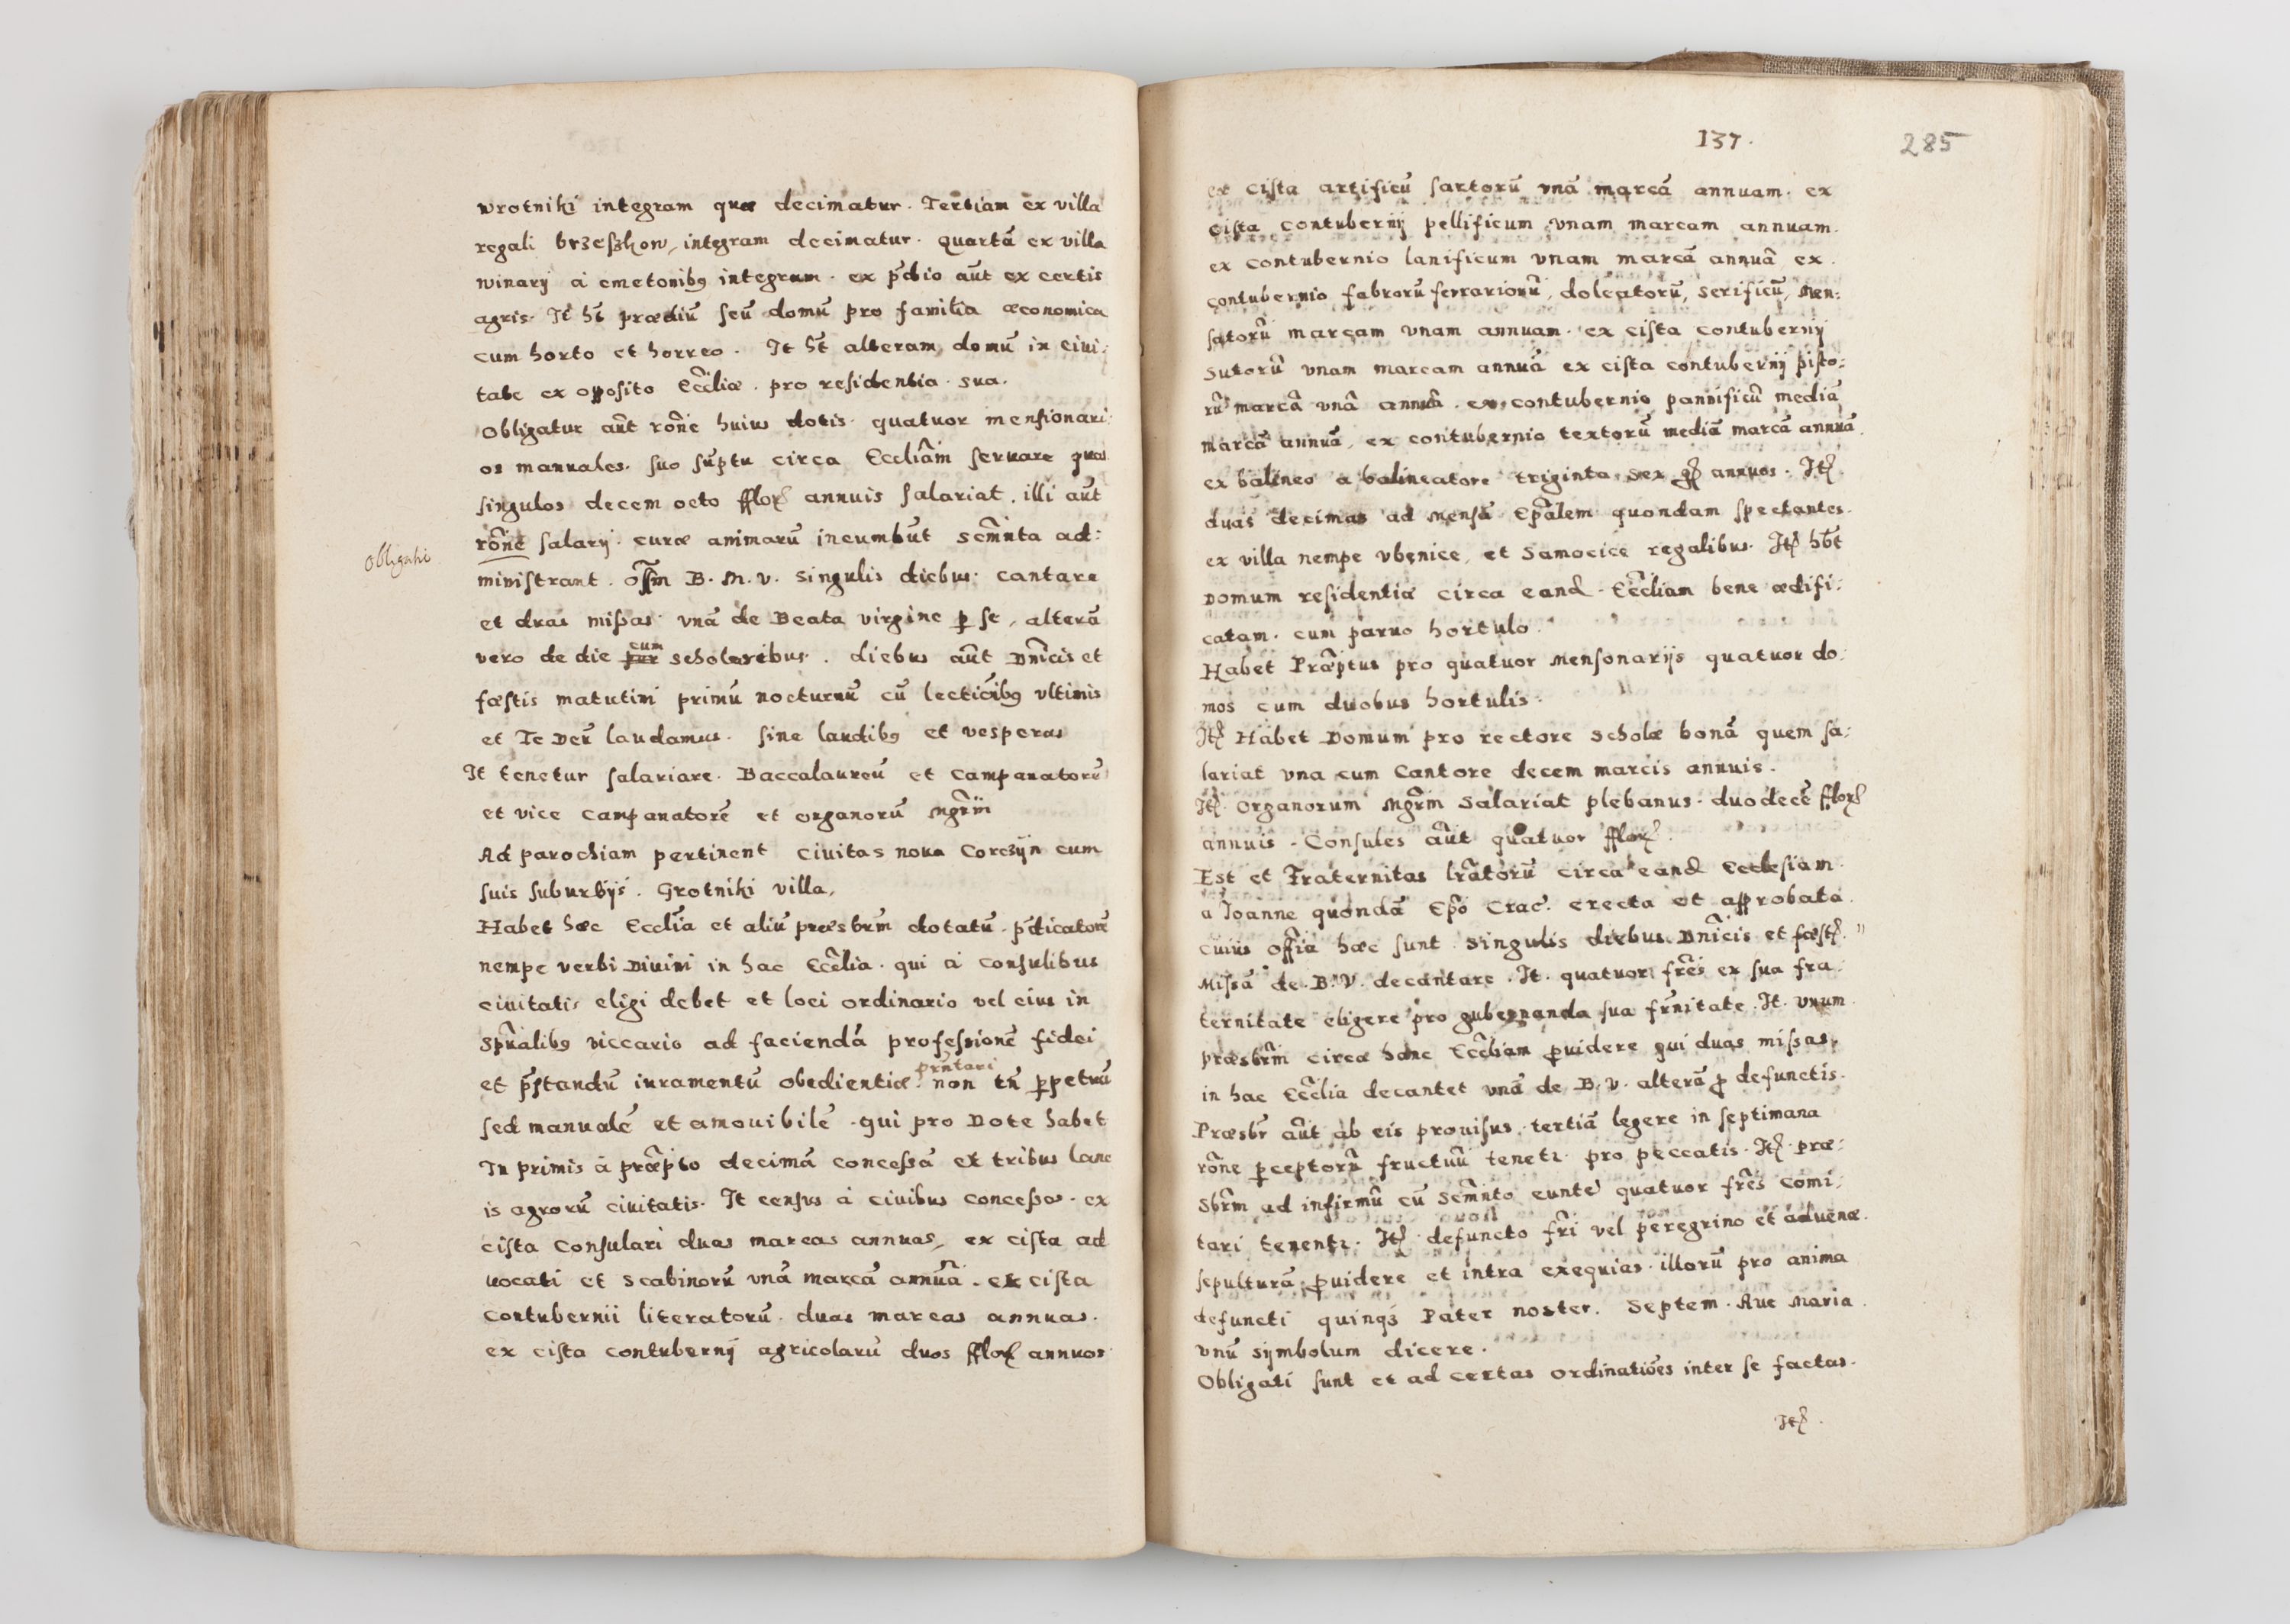 wrotniki integram quæ decimatur. Tertiam ex villa
regali brzeszkow, integram decimatur. quartā ex villa
winary à cmetonibꝯ integram. ex p̄dio aūt ex certis
agris. It hēt prædiū seū domū pro familia œconomica
cum horto et horreo. It hēt alteram domū in ciui:
tate ex opposito Eccliæ. pro residentia sua.
Obligatur aūt rōne huius dotis quatuor mensionari
os manuales. suo sūptu circa Eccliām seruare quos
singulos decem octo fflor annuis salariat. illi aūt
obligatio
rōne salarij curæ animarū incumbūt scmnta ad:
ministrant. offm B. M. V. singulis diebus cantare
et duas missas vnā de Beata virgine p se, alterā
vero de die per cum scholaribus. diebus aūt Dnicis et
fæstis matutini primū nocturnū cū lectioībꝯ vltimis
et Te Deū laudamus. sine laudibꝯ et vesperas
It tenetur salariare. Baccalaureū et campanatorū
et vice campanatorē et organorū Mgrm
Ad parochiam pertinent Ciuitas noua Corczyn cum
suis suburbijs. Grotniki villa,
Habet hæc Ecclīa et aliū præsbrm dotatū. p̄dicatorē
nempe verbi Diuini in hac Ecclīa. qui à consulibus
ciuitatis eligi debet et loci ordinario vel eius in
Sprualibꝯ viccario ad faciendā professionē fidei
et p̄standū iuramentū obedientiæ. prntari non tn̄ ppetuū
sed manualē et amouibilē. qui pro Dote habet
In primis à præpto decimā concessā ex tribus lane
is agrorū ciuitatis. It census à ciuibus concessos. ex
cista Consulari duas marcas annuas, ex cista ad
uocati et scabinorū vnā marcā annuā. ex cista
contubernii literatorū. duas marcas annuas.
ex cista contubernij agricolarū duos fflor annuos
137.
285
ex cista artificū sartorū vnā marcā annuam. ex
cista contubernij pellificum vnam marcam annuam.
ex contubernio lanificum vnam marcā annuā ex
contubernio fabrorū ferrariorū, doleatorū, serificū, Men:
satorū marcam vnam annuam. ex cista contubernij
sutorū vnam marcam annuā ex cista contubernij pisto:
rū marcā vnā annuā. ex contubernio pannificū mediā
marcā annuā, ex contubernio textorū mediā marcā annuā.
ex balineo a balineatore triginta sex gr annuos. It
duas decimas ad mensā Epālem quondam spectantes.
ex villa nempe vbenice, et Samocice regalibus. It hēt
Domum residentiæ circa eand Eccliam bene ædifi:
catam. cum paruo hortulo.
Habet Præptus pro quatuor Mensonarijs quatuor do:
mos cum duobus hortulis.
It Habet Domum pro rectore scholæ bonā quem sa:
lariat vna cum Cantore decem marcis annuis.
It. Organorum Mgrm salariat plebanus. duodecē fflor
annuis. Consules aūt quatuor fflor.
Est et Fraternitas lrātorū circa eand Ecclesiam.
a Joanne quondā Epō Crac. erecta et approbata.
cuius offia hæc sunt singulis diebus Dnicis et fæst.
Missā de B. V. decantare. It. quatuor frēs ex sua fra:
ternitate eligere pro gubernanda sua frnitate. It. vnum
præsbrm circa hanc Eccliam puidere qui duas missas,
in hac Ecclia decantet vnā de B. V. alterā p defunctis.
Præsbr aūt ab eis prouisus. tertiā legere in septimana
rōne pceptorū fructuū tenetr pro peccatis. It præ:
sbrm ad infirmū cū scmnto euntē quatuor frēs comi:
tari tenentr. It defuncto fri vel peregrino et aduenæ.
sepulturā puidere et intra exequias illorū pro anima
defuncti quinqꝫ Pater noster. Septem Aue Maria.
vnū symbolum dicere.
Obligati sunt et ad certas ordinatiōes inter se factas.
It.